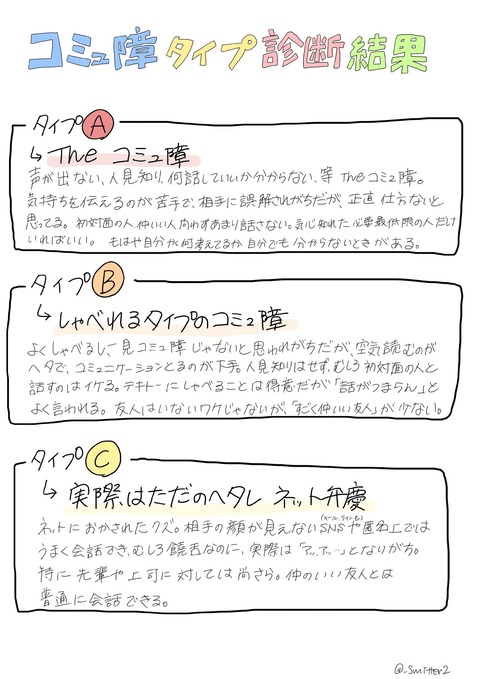 コミュ障タイプ診断結果
タイプA
↳ The コミュ障
声が出ない、人見知り、何話していいか分からない、等 The コミュ障。
気持ちを伝えるのが苦手で、相手に誤解されがちだが、正直仕方ないと
思ってる。初対面の人、仲いい人問わずあまり話さない。気心知れた必要最低限の人だけ
いればいい。もはや自分が何考えてるか自分でも分からないときがある。
タイプB
↳ しゃべれるタイプのコミュ障
よくしゃべるし、一見コミュ障じゃないと思われがちだが、空気読むのが
ヘタで、コミュニケーションとるのが下手。人見知りはせず、むしろ初対面の人と
話すのはイケる。テキトーにしゃべることは得意だが「話がつまらん」と
よく言われる。友人はいないワケじゃないが、「すごく仲いい友人」が少ない。
タイプC
↳ 実際はただのヘタレ ネット弁慶
ネットにおかされたクズ。相手の顔が見えないSNSや匿名上では
うまく会話でき、むしろ饒舌なのに、実際は「アッ、アッ…」となりがち。
特に先輩や上司に対しては尚さら。仲のいい友人とは
普通に会話できる。
@_Smitter2